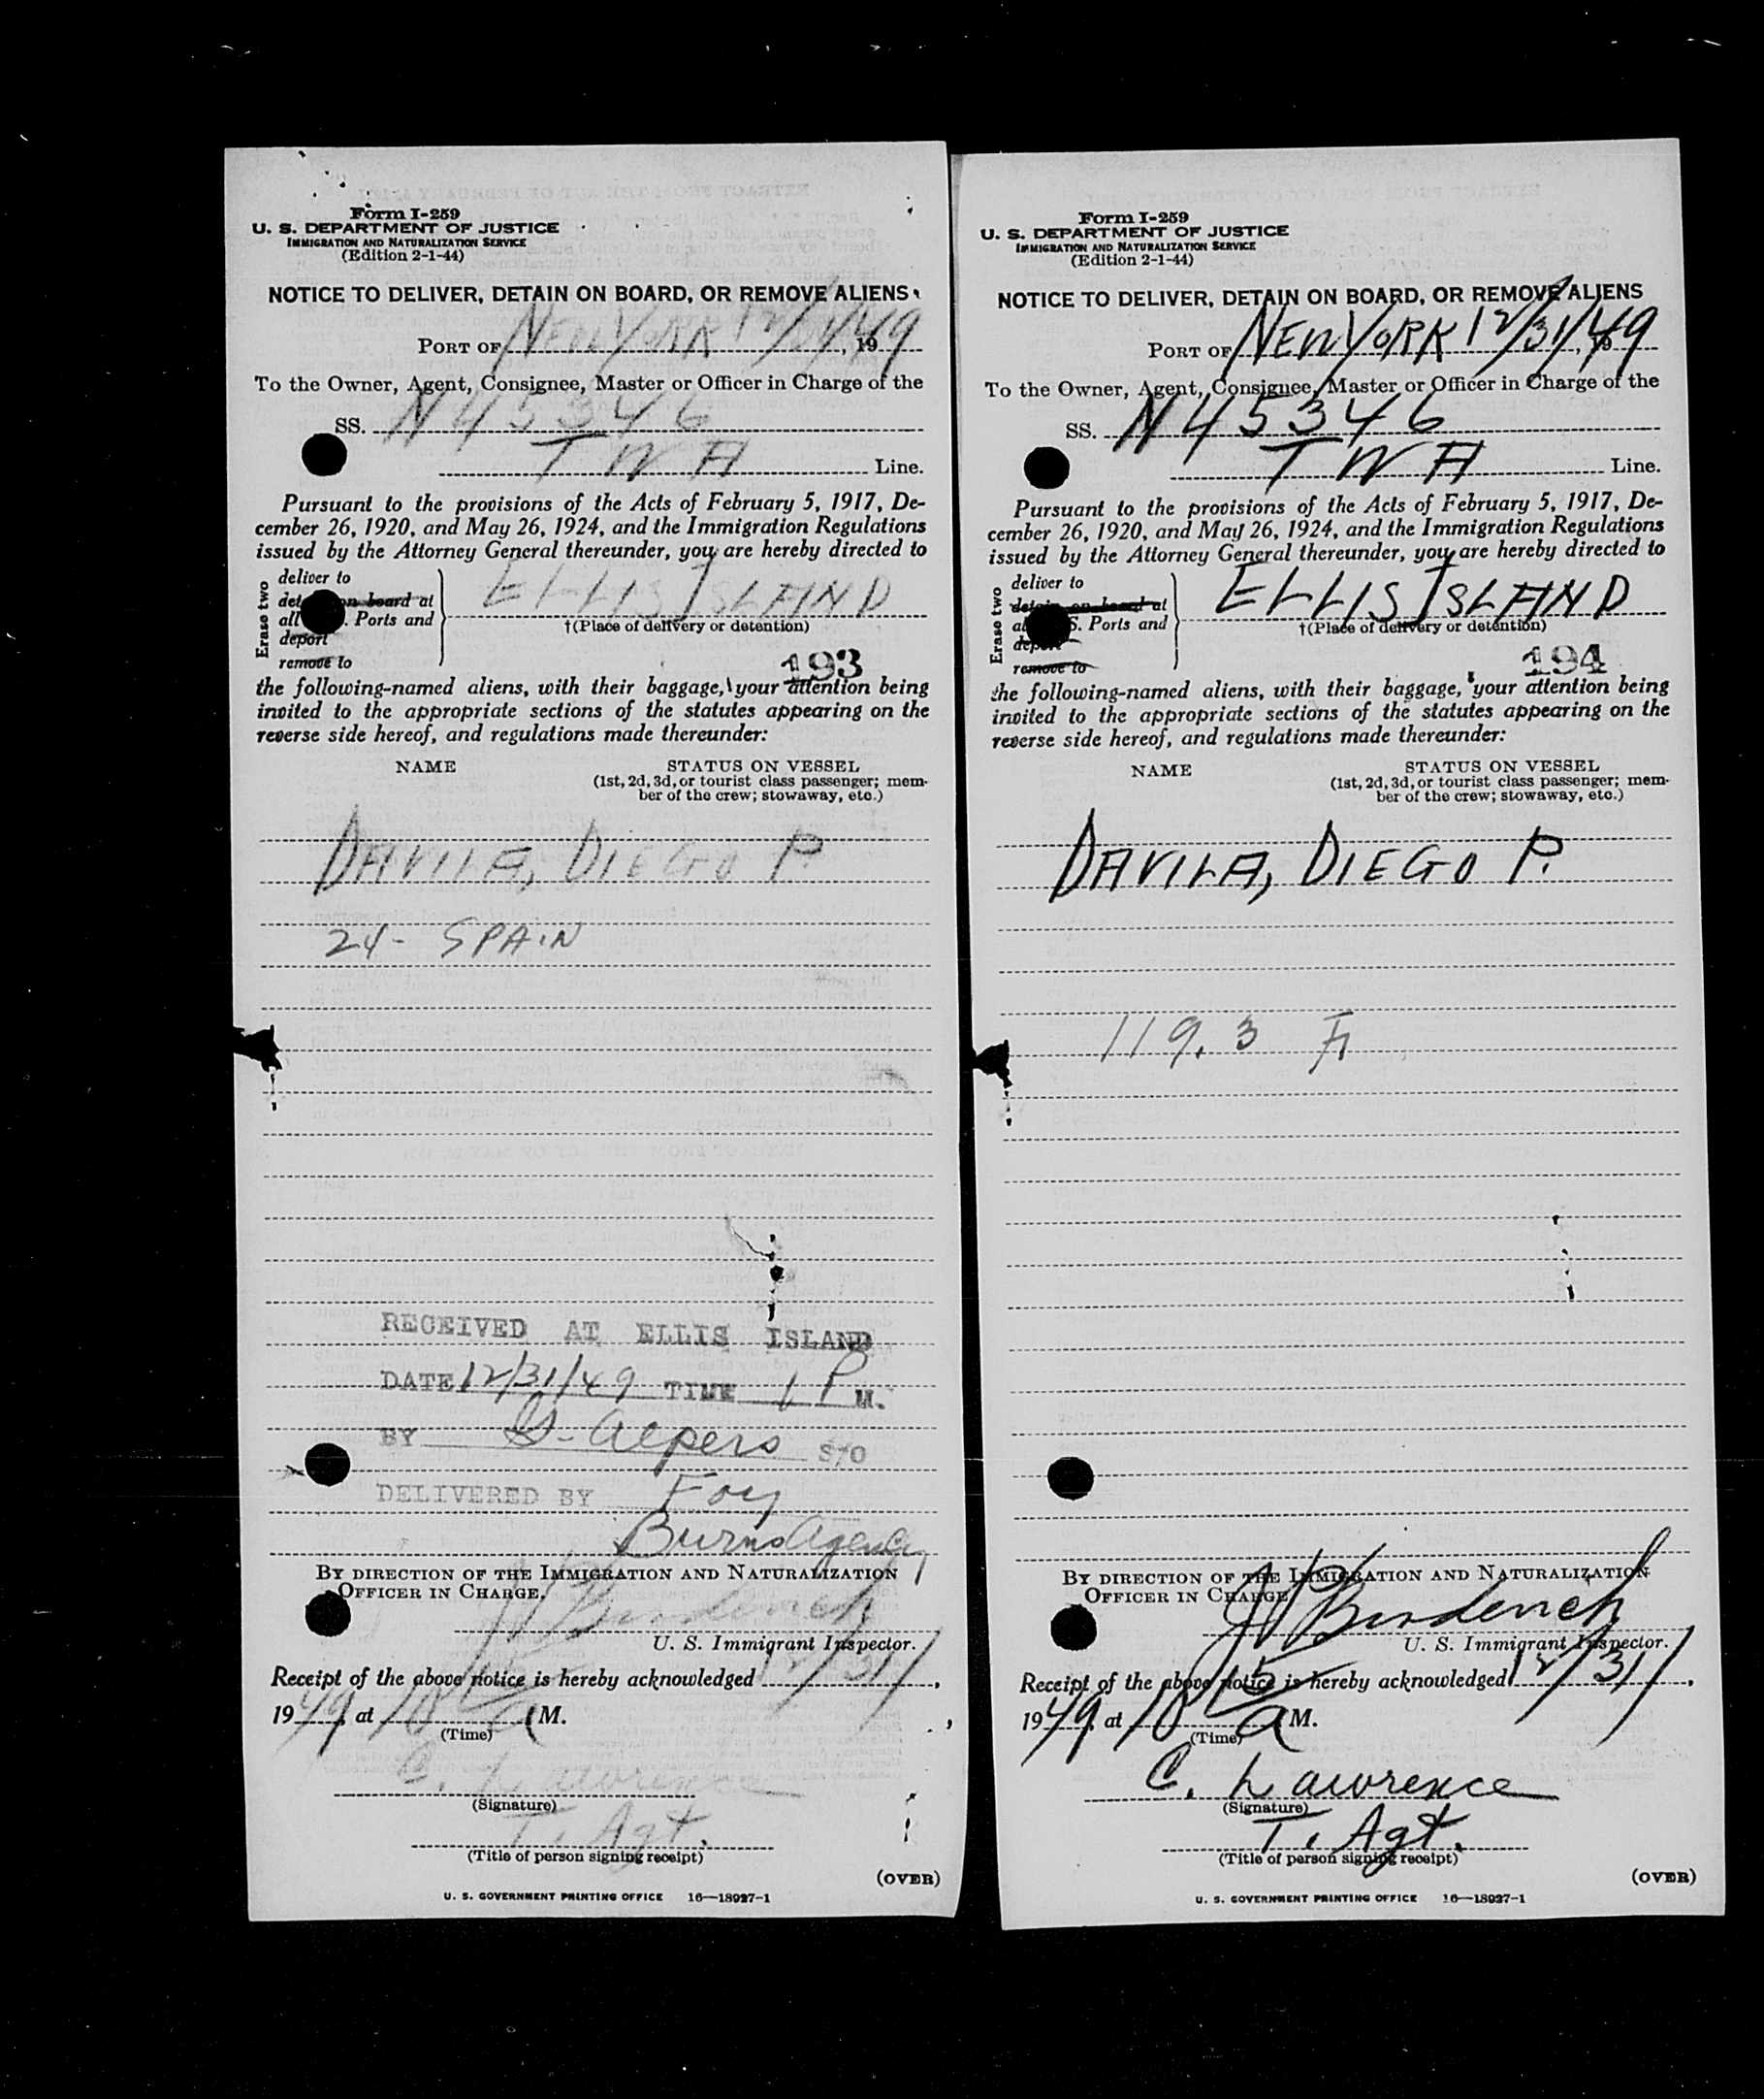 Form I-259
U. S. DEPARTMENT OF JUSTICE
IMMIGRATION AND NATURALIZATION SERVICE
(Edition 2-1-44)
NOTICE TO DELIVER, DETAIN ON BOARD, OR REMOVE ALIENS
PORT OF NEW YORK 12/31/49, 19
To the Owner, Agent, Consignee, Master or Officer in Charge of the
SS. N 45346
TWA Line.
Pursuant to the provisions of the Acts of February 5, 1917, De-
cember 26, 1920, and May 26, 1924, and the Immigration Regulations
issued by the Attorney General thereunder, you are hereby directed to
Erase two
deliver to
det on board at
all . Ports and
deport
remove to
ELLIS ISLAND
†(Place of delivery or detention)
193
the following-named aliens, with their baggage, your attention being
invited to the appropriate sections of the statutes appearing on the
reverse side hereof, and regulations made thereunder:
NAME
STATUS ON VESSEL
(1st, 2d, 3d, or tourist class passenger; mem-
ber of the crew; stowaway, etc.)
DAVILA, DIEGO P.
24- SPAIN
RECEIVED AT ELLIS ISLAND
DATE 12/31/49 TIME 1 P M.
BY G- Alpers S/O
DELIVERED BY Foy
Burns Agency
BY DIRECTION OF THE IMMIGRATION AND NATURALIZATION
OFFICER IN CHARGE.
U. S. Immigrant Inspector.
Receipt of the above notice is hereby acknowledged 12/31/,
1949, at 10 15 a M.
(Time)
C. Lawrence
(Signature)
T. Agt.
(Title of person signing receipt)
(OVER)
U. S. GOVERNMENT PRINTING OFFICE 16—18927-1
Form I-259
U. S. DEPARTMENT OF JUSTICE
IMMIGRATION AND NATURALIZATION SERVICE
(Edition 2-1-44)
NOTICE TO DELIVER, DETAIN ON BOARD, OR REMOVE ALIENS
PORT OF NEW YORK 12/31/49, 19
To the Owner, Agent, Consignee, Master or Officer in Charge of the
SS. N 45346
TWA Line.
Pursuant to the provisions of the Acts of February 5, 1917, De-
cember 26, 1920, and May 26, 1924, and the Immigration Regulations
issued by the Attorney General thereunder, you are hereby directed to
Erase two
deliver to
detain on board at
al S. Ports and
deport
remove to
ELLIS ISLAND
†(Place of delivery or detention)
194
the following-named aliens, with their baggage, your attention being
invited to the appropriate sections of the statutes appearing on the
reverse side hereof, and regulations made thereunder:
NAME
STATUS ON VESSEL
(1st, 2d, 3d, or tourist class passenger; mem-
ber of the crew; stowaway, etc.)
DAVILA, DIEGO P.
119.3
BY DIRECTION OF THE IMMIGRATION AND NATURALIZATION
OFFICER IN CHARGE
U. S. Immigrant Inspector.
Receipt of the above notice is hereby acknowledged 12/31/,
1949, at 10 15 a M.
(Time)
C. Lawrence
(Signature)
T. Agt.
(Title of person signing receipt)
(OVER)
U. S. GOVERNMENT PRINTING OFFICE 16—18927-1